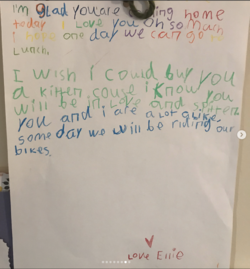 I'm glad you are coming home
today I love you oh so much
I hope one day we can go to
Lunch.
I wish i could buy you
a kitten couse i know you
will be in love and
you and i are a lot alike
some day we will be riding our
bikes.
Love Ellie